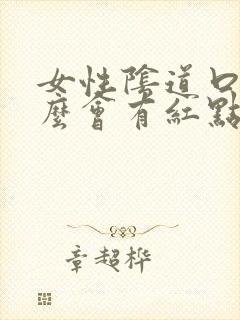 女性陰道口
麼會有紅點
章超桦